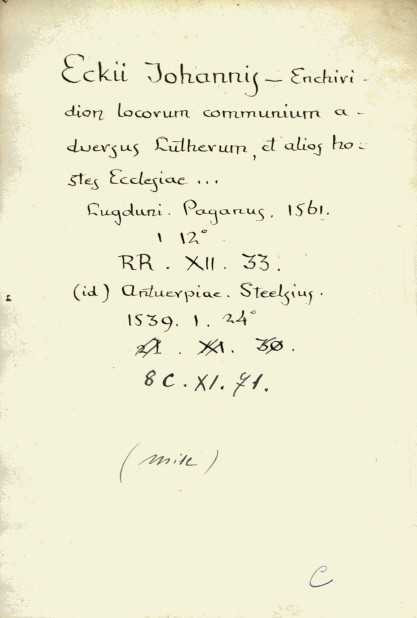 Eckii Johannis — Enchiri-
dion locorum communium a-
dversus Lutherum, et alios ho-
stes Ecclesiae ...
Lugduni. Paganus. 1561.
1 12°
RR. XII. 33.
(id) Antuerpiae. Steelsius.
1539. 1. 24°
21. XI. 30.
8 C. XI. 71.
(misc)
C